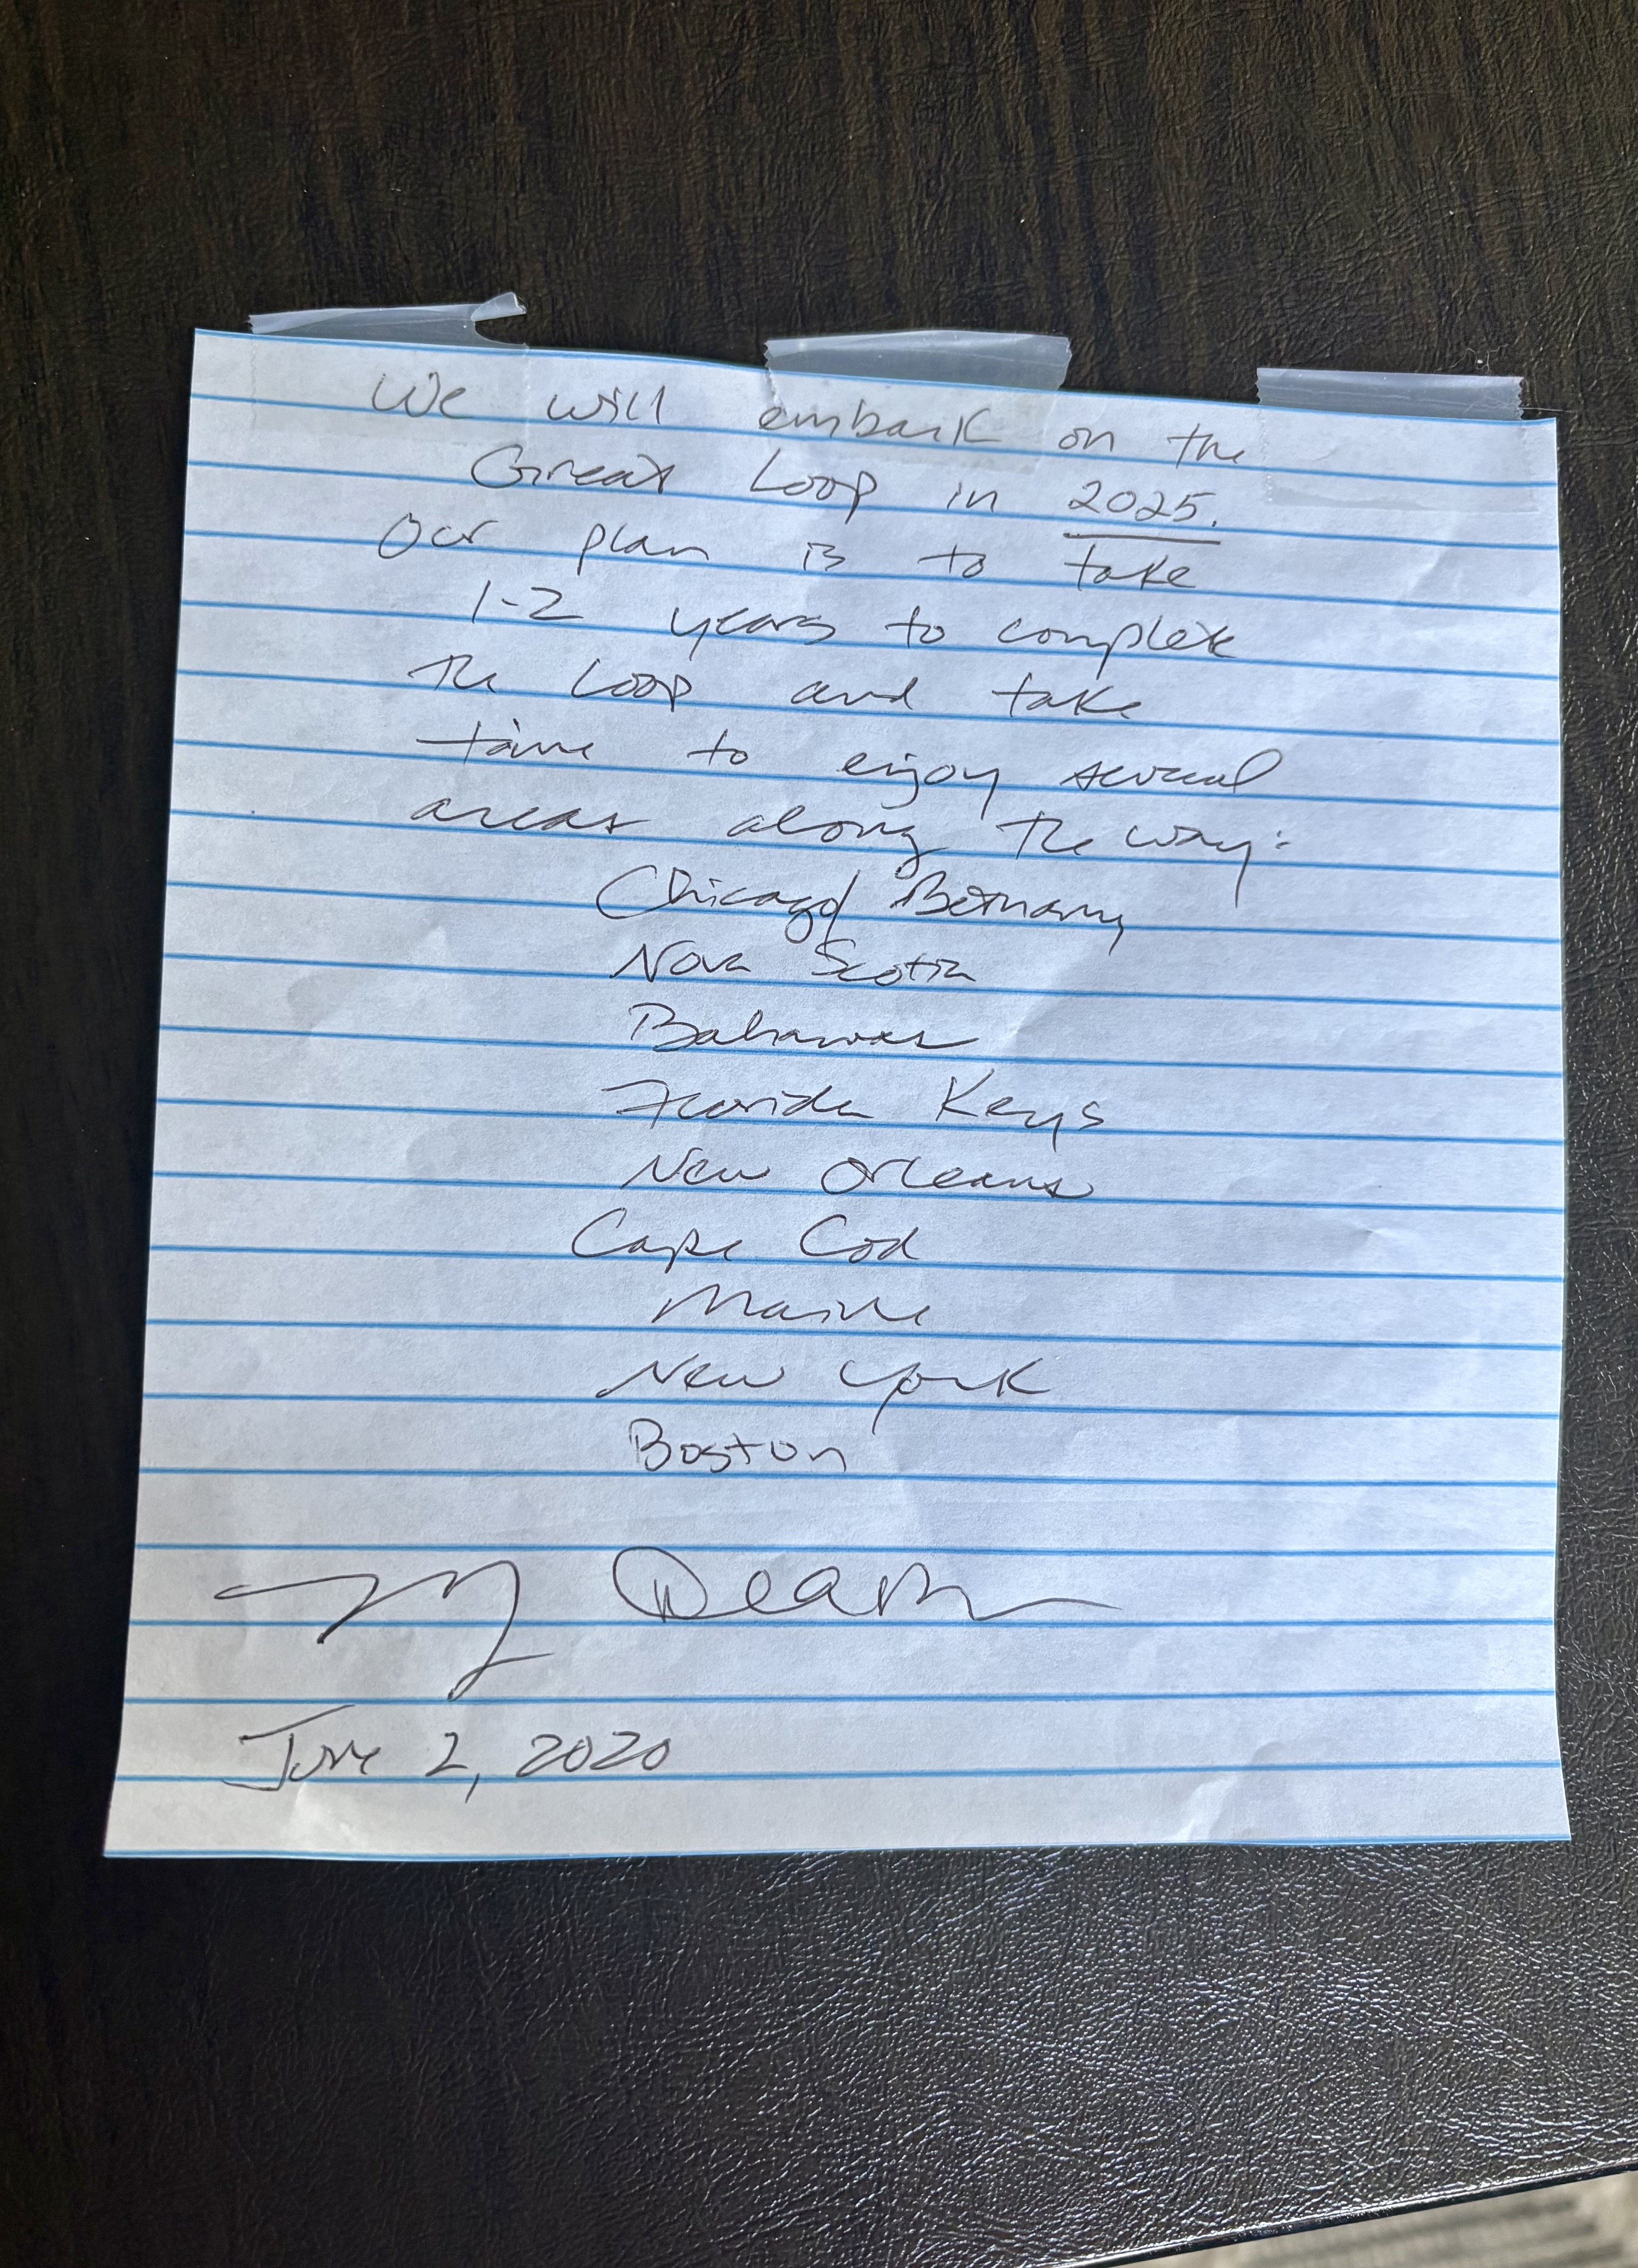 We will embark on the
Great Loop in 2025.
Our plan is to take
1-2 years to complete
the Loop and take
time to enjoy several
areas along the way:
Chicago/ Bethany
Nova Scotia
Bahamas
Florida Keys
New Orleans
Cape Cod
Maine
New York
Boston
June 2, 2020